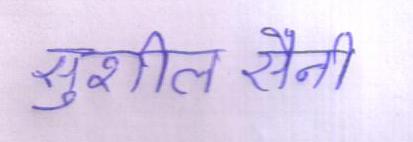 सुशील सैनी